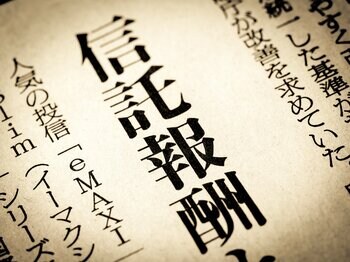 やすく
統一した基準が
庁が改善を求めていた
信託報酬
人気の投信「eMAXI
Slim（イーマクシ
」シリーズ